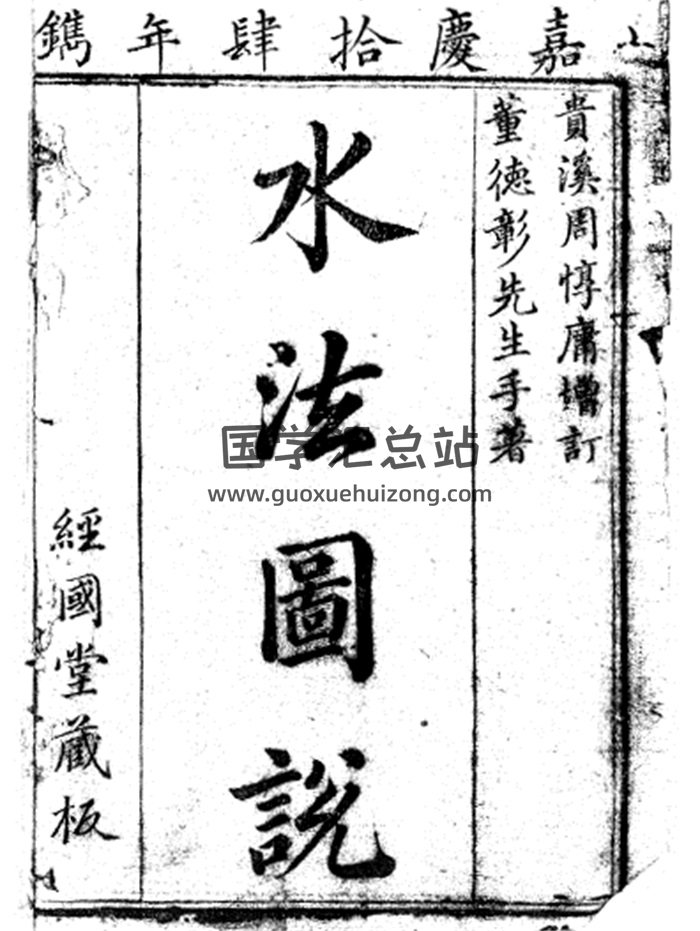 嘉慶拾肆年鐫
貴溪周惇庸增訂
董德彰先生手著
水法圖說
經國堂藏板
国学汇总站
www.guoxuehuizong.com